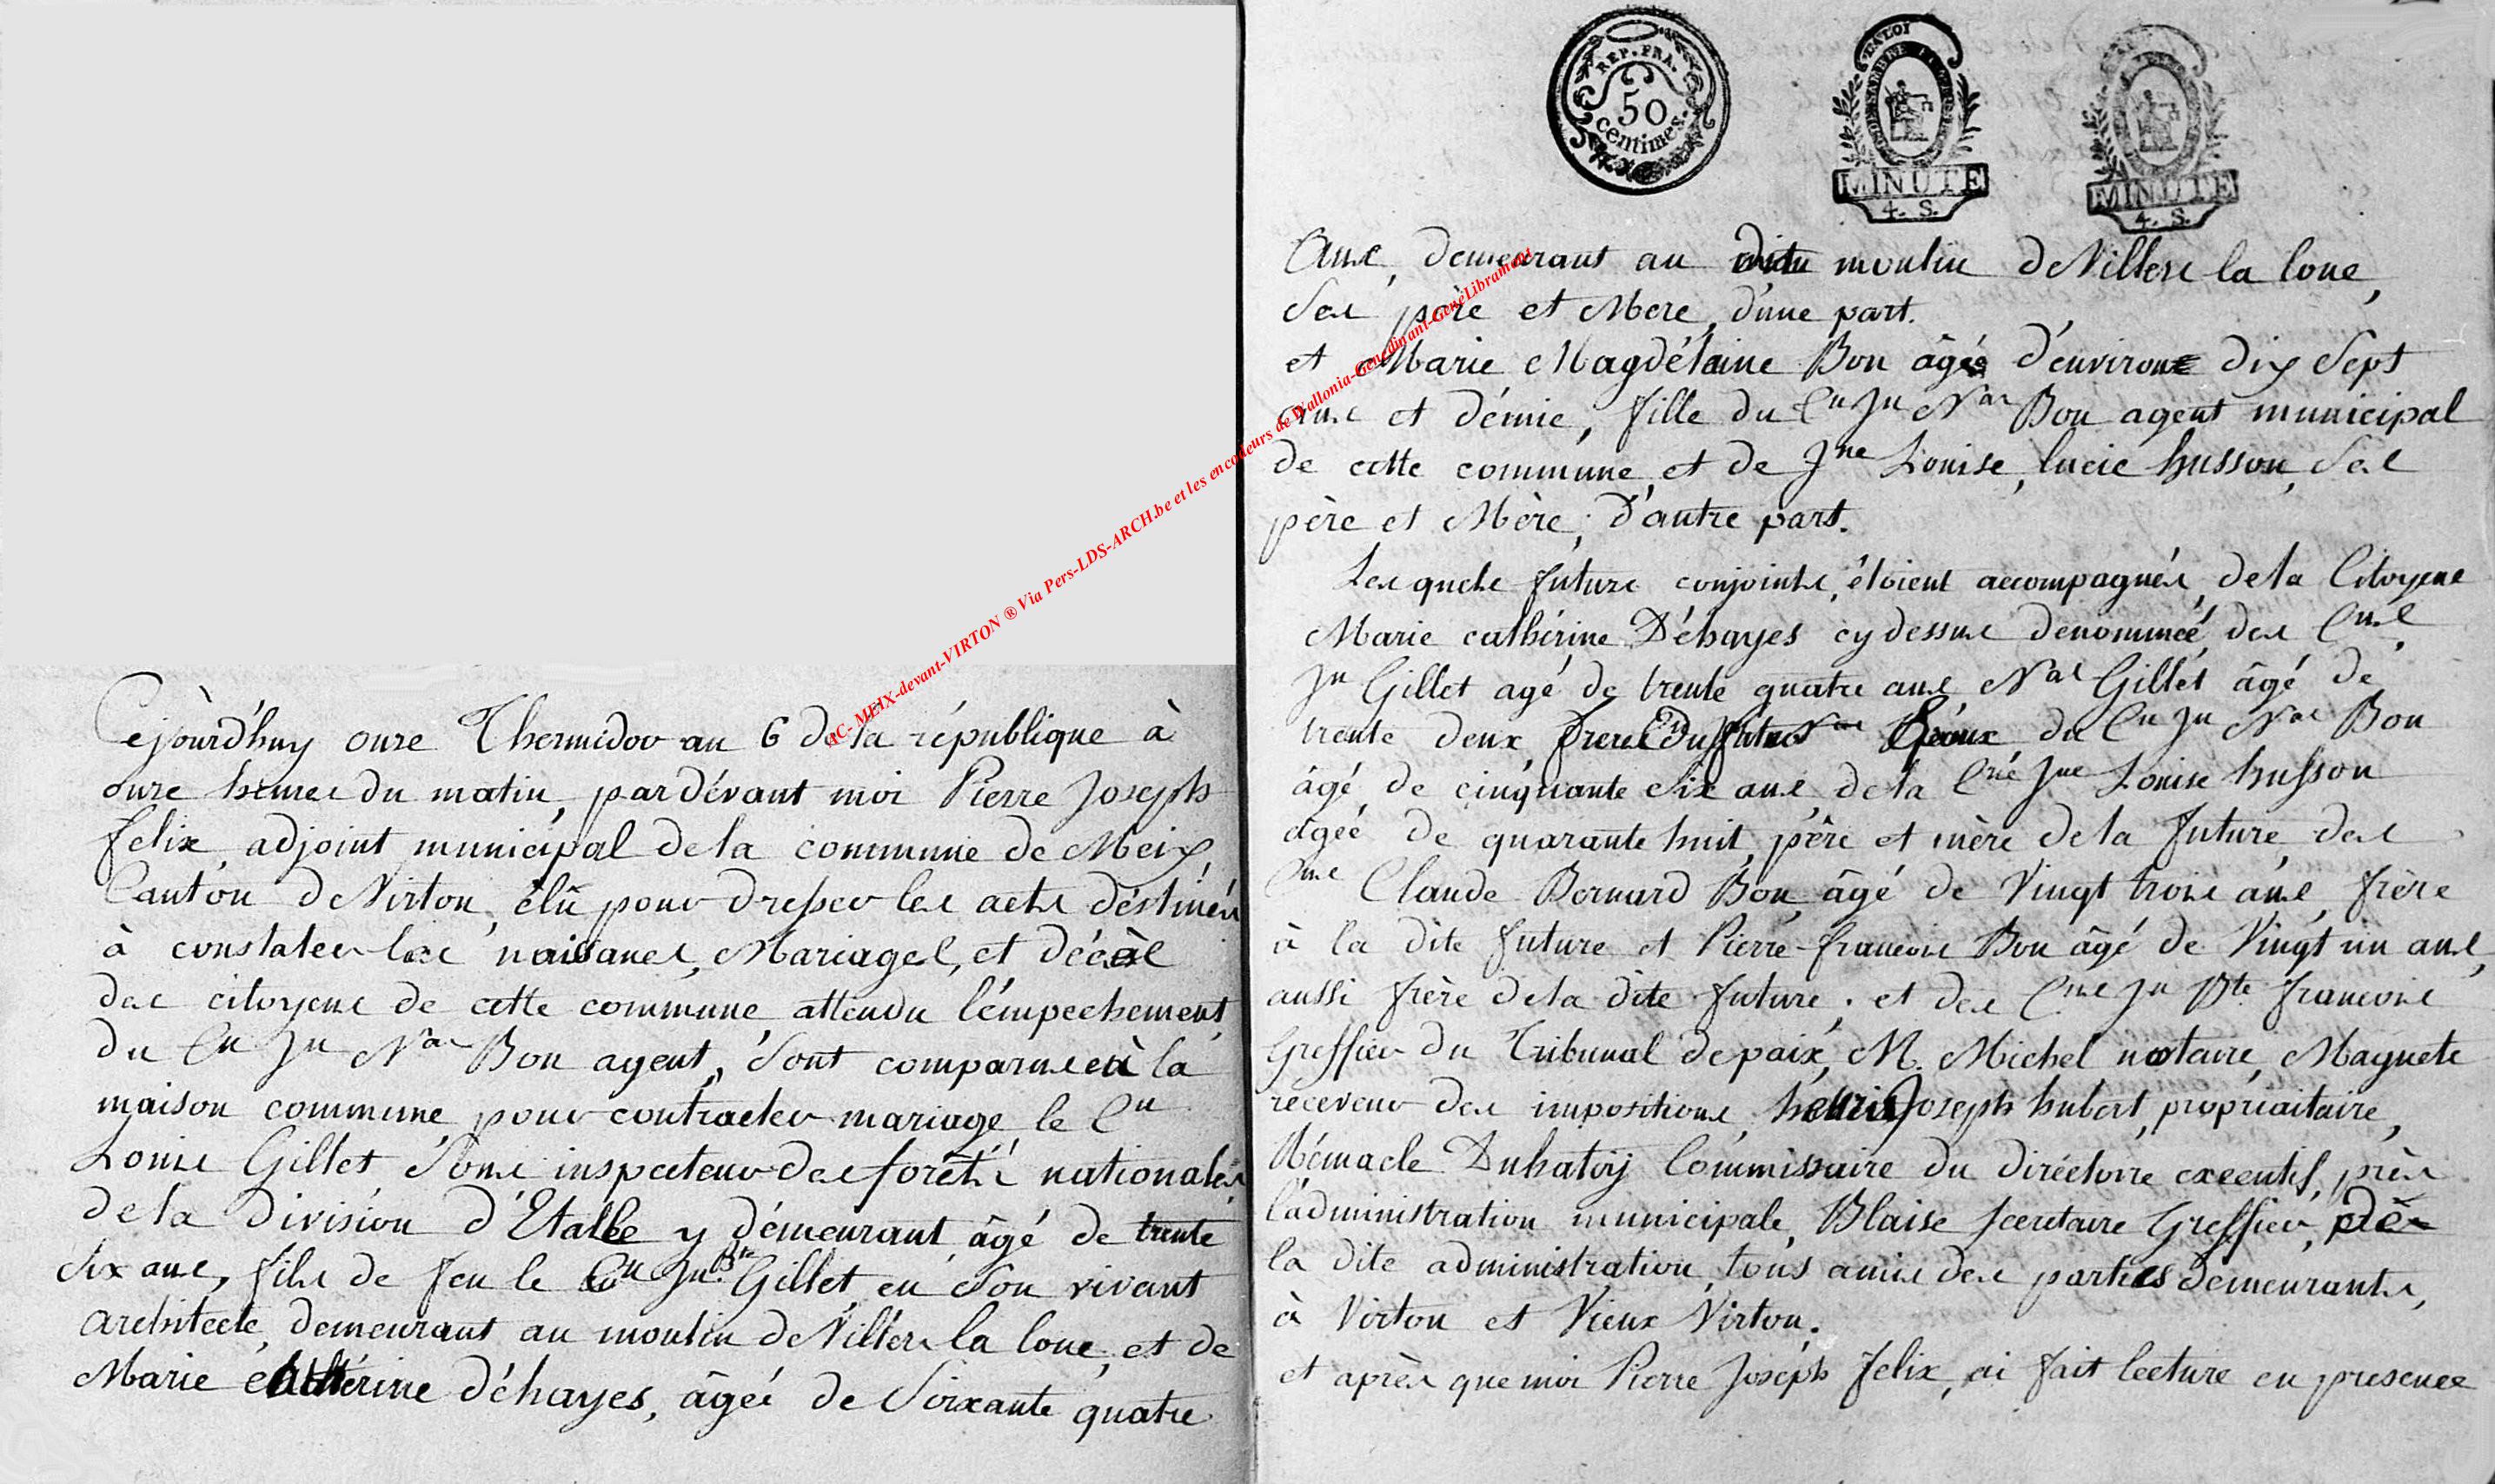 Cejòurd'huy onze Thermidor an 6 de la république à
onze heures du matin, pardévant moi Pierre Joseph
felix, adjoint municipal de la commune de Meix,
Canton de Virton, élû pour dresser les actes déstinés
à constater les naisances, Mariages, et décès
des citoyens de cette commune, attendu l'émpechement
du Cen Jn Nas Bon agent, sont comparus à la
maison commune, pour contracter mariage le Cen
Louis Gillet Sous inspecteur des forêts nationales
de la division d'Etalle y démeurant, âgé de trente
six ans, fils de feu le Cen Jn Bte Gillet en son vivant
architecte, demeurant au moulin de Villers la loue, et de
Marie cathérine déhayes, âgée de Soixante quatre
REP. FRA.
50
centimes.
LA LOI
MINUTE
4. S.
MINUTE
4. S.
ans, demeurant au moulin de Villers la loue,
ses père et Mere, d'une part.
et Marie Magdélaine Bon âgée d'environ dix Sept
ans et démie, fille du Cn Jn Nas Bon agent municipal
de cette commune, et de Jne Louise, lucie husson, ses
père et Mère, d'autre part.
Les quels futurs conjoints, étoient accompagnés, de la Citoyene
Marie cathérine Déhayes cy dessus denommée, des Cens
Jn Gillet agé de trente quatre ans, Nas Gillet âgé de
trente deux freres du futur Epoux, du Cn Jn Nas Bon
âgé, de cinquante six ans, de la Cne Jne Louise husson
agée de quarante huit, père et mère de la future, des
Cens Claude Bernard Bon, âgé de Vingt trois ans, frère
à la dite future et Pierre-francois Bon âgé de Vingt un ans,
aussi frère de la dite future, et des Cens Jn Bte francois
Greffier du Tribunal de paix, M. Michel notaire, Magnete
réceveur des impositions, henri Joseph hubert, propriaitaire,
Rémacle Duhatoij Commissaire du diréctoire executif, près
l'administration municipale, Blaise secretaire Greffier, près
la dite administration, tous amis des parties demeurants,
à Virton et Vieux Virton.
et après que moi Pierre Joseph felix, ai fait lecture en presence
AC- MEIX-devant-VIRTON ® Via Pers-LDS-ARCH.be et les encodeurs de Wallonia-Genedinant-GeneLibramont